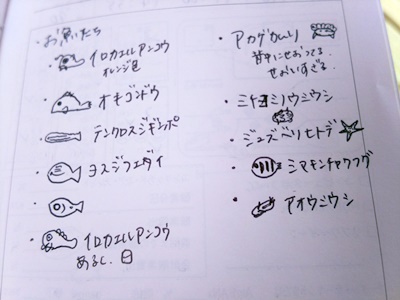 ・お魚たち
・イロカエルアンコウ
オレンジ色
・オキゴンドウ
・テンクロスジギンポ
・ヨスジフエダイ
・
・イロカエルアンコウ
あるし、白
・アカゲカムリ
背中にせおってる。
せおいすぎる。
・ミカヨミノウミウシ
・ジュズベリヒトデ
・シマキンチャクフグ
・アオウミウシ